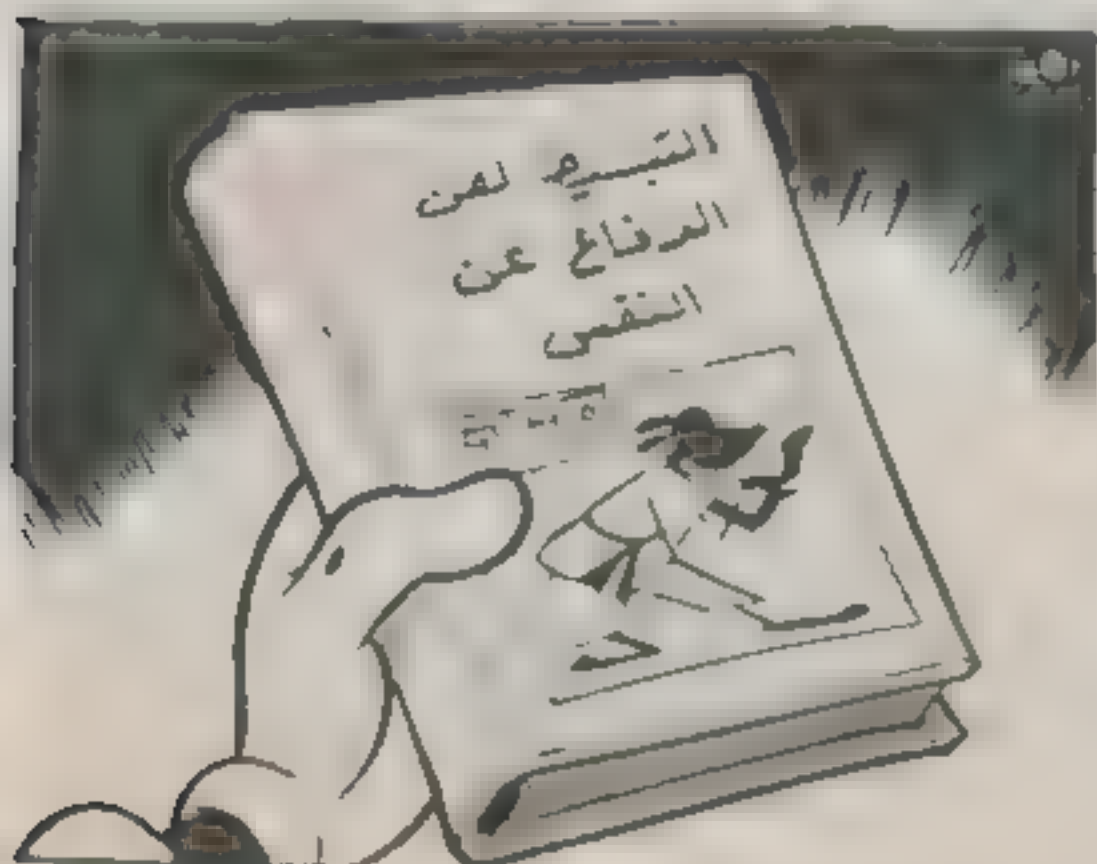 التبسيم لفن
الدفاع عن
النفس